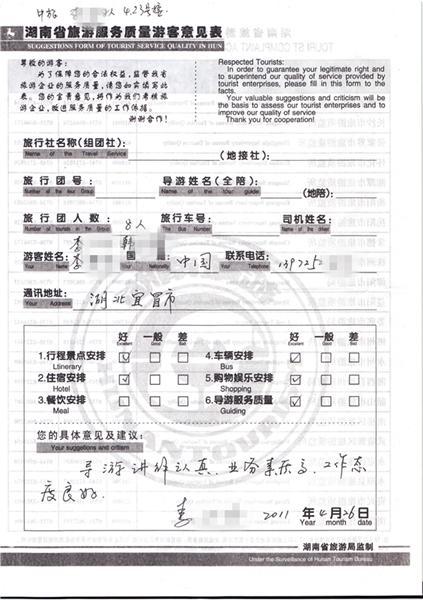 4.23号楼
湖南省旅游服务质量游客意见表
SUGGESTIONS FORM OF TOURIST SERVICE QUALITY IN HUN
尊敬的游客:
为了保障您的合法权益,监督我省
旅游企业的服务质量,请您如实填写此
表。您的宝贵意见,将作为我们考核旅
游企业,改进服务质量的工作依据。
谢谢合作!
Respected Tourists:
In order to guarantee your legitimate right and
to superintend our quality of service provided by
tourist enterprises, please fill in this form to the
facts.
Your valuable suggestions and criticism will be
the basis to assess our tourist enterprises and to
improve our quality of service
Thank you for cooperation!
旅行社名称(组团社): (地接社):
Name of the Travel Service
旅行团号: 导游姓名(全陪): (地陪):
Number of the tour Group Name of the tour guide
旅行团人数: 8人 旅行车号: 司机姓名:
Number of tourists in the Group The Bus Number Name of the driver
李 韩
游客姓名: 李 国 中国 联系电话: 139725
Your Name Your Nationality Your Telephone
通讯地址: 湖北宜昌市
Your Address
好 一般 差 好 一般 差
Excellent Good Bad Excellent Good Bad
1.行程景点安排 ☑ □ □ 4.车辆安排 ☑ □ □
Ltinerary Bus
2.住宿安排 ☑ □ □ 5.购物娱乐安排 ☑ □ □
Hotel Shopping
3.餐饮安排 ☑ □ □ 6.导游服务质量 ☑ □ □
Meal Guiding
您的具体意见及建议:
Your suggetions and critism
导游讲解认真、业务素质高、工作态
度良好.
李 2011 年 4 月 26 日
Year month date
湖南省旅游局监制
Under the Surveillance of Hunan Tourism Bureau